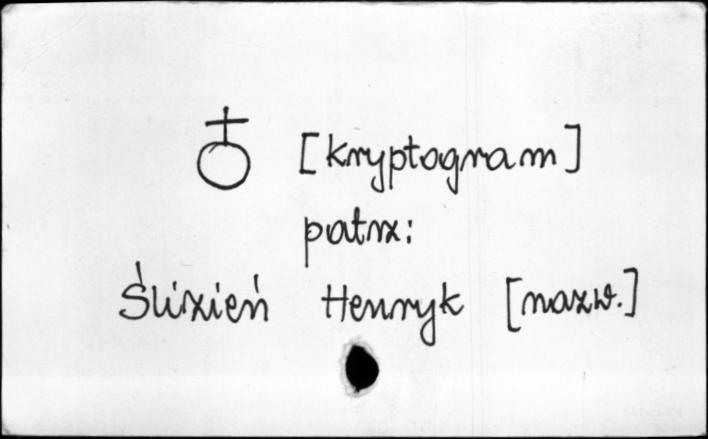 ♁ [kryptogram]
patrz:
Ślizień Henryk [nazw.]